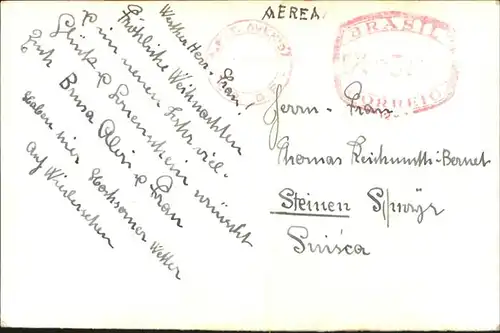 AEREA
BRASIL
CORREIO
Werther Herr - Frau!
Fröhliche Weihnachten
u im neuen Jahr viel
Glück u Sonnenschein wünscht
Frau
Haben hier Hochsommer Wetter
auf Wiedersehen
Herrn - Frau
Thomas Reichmuth-Bernet
Steinen Schwyz
Suisca